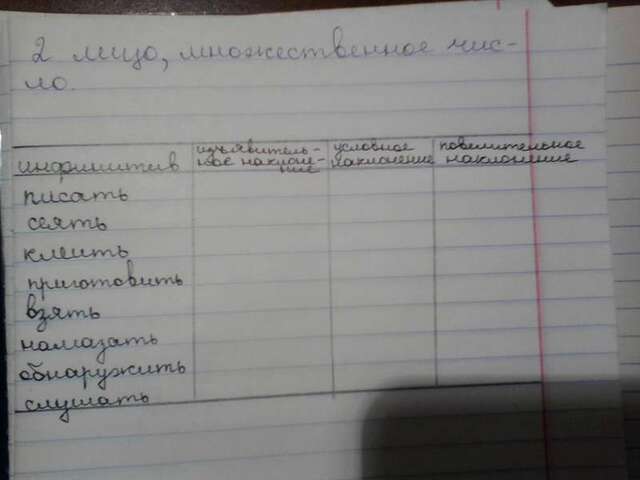 2 лицо, множественное чис-
ло.
инфинитив изъявитель- ное наклоне- ние условное наклонение повелительное наклонение
писать
сеять
клеить
приготовить
взять
намазать
обнаружить
слушать